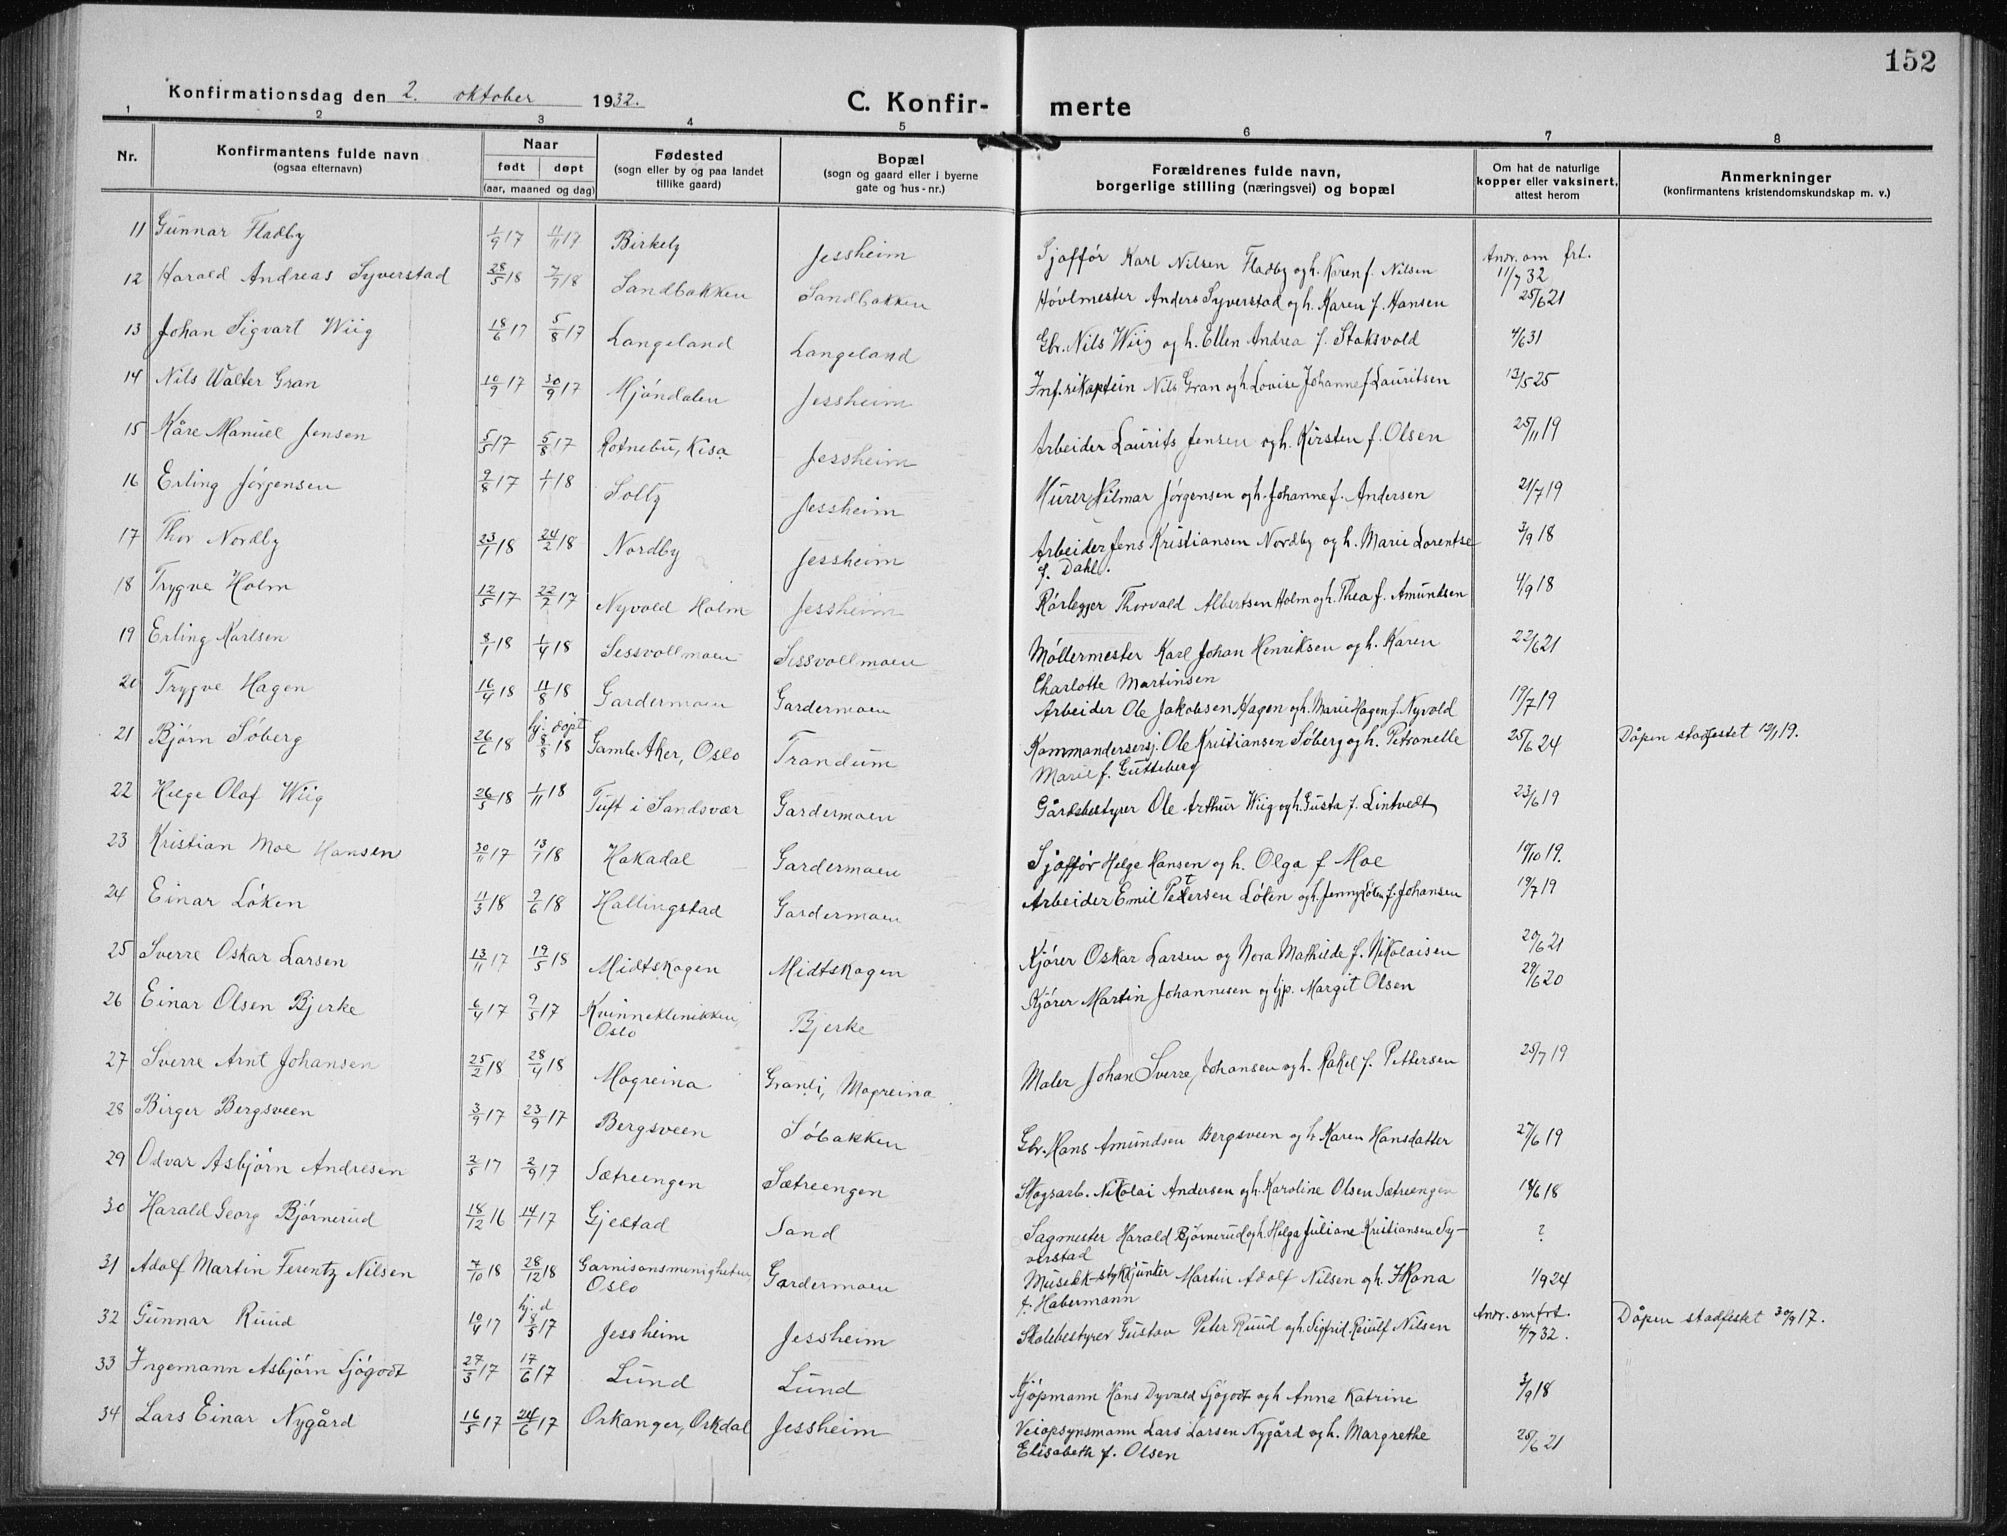 152
Konfirmationsdag den 2. oktober 1932.
C. Konfir- merte
1 2 3 4 5 6 7 8
Nr.
Konfirmantens fulde navn
(ogsaa efternavn)
Naar
født døpt
(aar, maaned og dag)
Fødested
(sogn eller by og paa landet
tillike gaard)
Bopæl
(sogn og gaard eller i byerne
gate og hus-nr.)
Forældrenes fulde navn,
borgerlige stilling (næringsvei) og bopæl
Om hat de naturlige
kopper eller vaksinert,
attest herom
Anmerkninger
(konfirmantens kristendomskundskap m. v.)
11 Gunnar Fladby 1/9 17 11/11 17 Birkely Jessheim Sjaffør Karl Nilsen Fladby og h. Karen f. Nilsen Andr. om frt. 11/7 32
12 Harald Andreas Syverstad 28/5 18 7/7 18 Sandbakken Sandbakken Høvlmester Anders Syverstad og h. Karen f. Hansen 25/6 21
13 Johan Sigvart Wiig 18/6 17 5/8 17 Langeland Langeland Gbr. Nils Wiig og h. Ellen Andrea f. Stoksvold 4/6 31
14 Nils Walter Gran 10/9 17 30/9 17 Mjøndalen Jessheim Inf.rikaptein Nils Gran og h. Lovise Johanne f. Lauritsen 13/5 25
15 Kåre Manuel Jensen 5/5 17 5/8 17 Rotnebu, Kisa Jessheim Arbeider Laurits Jensen og h. Kirsten f. Olsen 25/11 19
16 Erling Jørgensen 9/8 17 1/1 18 Solty Jessheim Murer Hilmar Jørgensen og h. Johanne f. Andersen 21/7 19
17 Thor Nordby 23/1 18 24/2 18 Nordby Jessheim Arbeider Jens Kristiansen Nordby og h. Marie Lorentse 3/9 18
f. Dahl.
18 Trygve Holm 12/5 17 22/7 17 Nyvold Holm Jessheim Rørlegger Thorvald Albertsen Holm og h. Thea f. Amundsen 4/9 18
19 Erling Karlsen 8/1 18 1/4 18 Sessvollmoen Sessvollmoen Møllermester Karl Johan Henriksen og h. Karen 22/6 21
Charlotte Martinsen
20 Trygve Hagen 16/4 18 11/8 18 Gardermoen Gardermoen Arbeider Ole Jakobsen Hagen og h. Marie Hagen f. Nyvold 19/7 19
21 Bjørn Søberg 26/6 18 hj. døpt 8/8 18 Gamle Aker, Oslo Trandum Kommandersersj. Ole Kristiansen Søberg og h. Petronelle 25/6 24 Dåpen stadfestet 12/1 19.
Marie f. Gutteberg
22 Helge Olaf Wiig 26/5 18 1/11 18 Tuft i Sandsvær Gardermoen Gårdsbestyrer Ole Arthur Wiig og h. Gusta f. Lintvedt 23/6 19
23 Kristian Moe Hansen 30/11 17 13/1 18 Hakadal Gardermoen Sjaffør Helge Hansen og h. Olga f. Moe 10/10 19.
24 Einar Løken 11/3 18 2/6 18 Hallingstad Gardermoen Arbeider Emil Petersen Løken og h. Jenny Løken f. Johansen 19/7 19
25 Sverre Oskar Larsen 13/11 17 19/5 18 Midtskogen Midtskogen Kjører Oskar Larsen og Nora Mathilde f. Nikolaisen 20/6 21
26 Einar Olsen Bjerke 6/4 17 9/5 17 Kvinneklinikken, Oslo Bjerke Kjører Martin Johannesen og pp. Margit Olsen 29/6 20
27 Sverre Arnt Johansen 25/2 18 28/4 18 Mogreina Granli, Mogreina Maler Johan Sverre Johansen og h. Rakel f. Pettersen 25/7 19
28 Birger Bergsveen 3/9 17 23/9 17 Bergsveen Søbakken Gbr. Hans Amundsen Bergsveen og h. Karen Hansdatter 27/6 19
29 Odvar Asbjørn Andresen 2/5 17 2/9 17 Sætreengen Sætreengen Skogsarb. Nikolai Andersen og h. Karoline Olsen Sætreengen 18/6 18
30 Harald Georg Bjørnerud 18/12 16 14/1 17 Gjestad Sand Sagmester Harald Bjørnerud og h. Helga Juliane Kristiansen Sy- ?
verstad
31 Adolf Martin Ferentz Nilsen 7/10 18 28/12 18 Garnisonsmenigheten, Oslo Gardermoen Musikk-stykkjunker Martin Adolf Nilsen og h. 1/9 24
f. Habermann
32 Gunnar Ruud 10/4 17 hj. d 8/5 17 Jessheim Jessheim Skolebestyrer Gustav Peter Ruud og h. Sigfrid Ruulf Nilsen Andr. om frt. 4/7 32. Dåpen stadfestet 30/9 17.
33 Ingemann Asbjørn Sjøgodt 27/3 17 17/6 17 Lund Lund Kjøpmann Hans Dyvald Sjøgodt og h Anna Katrine 3/9 18
34 Lars Einar Nygård 16/5 17 24/6 17 Orkanger, Orkdal Jessheim Veiopsynsmann Lars Larsen Nygård og h. Margrethe 25/6 21
Elisabeth f. Olsen